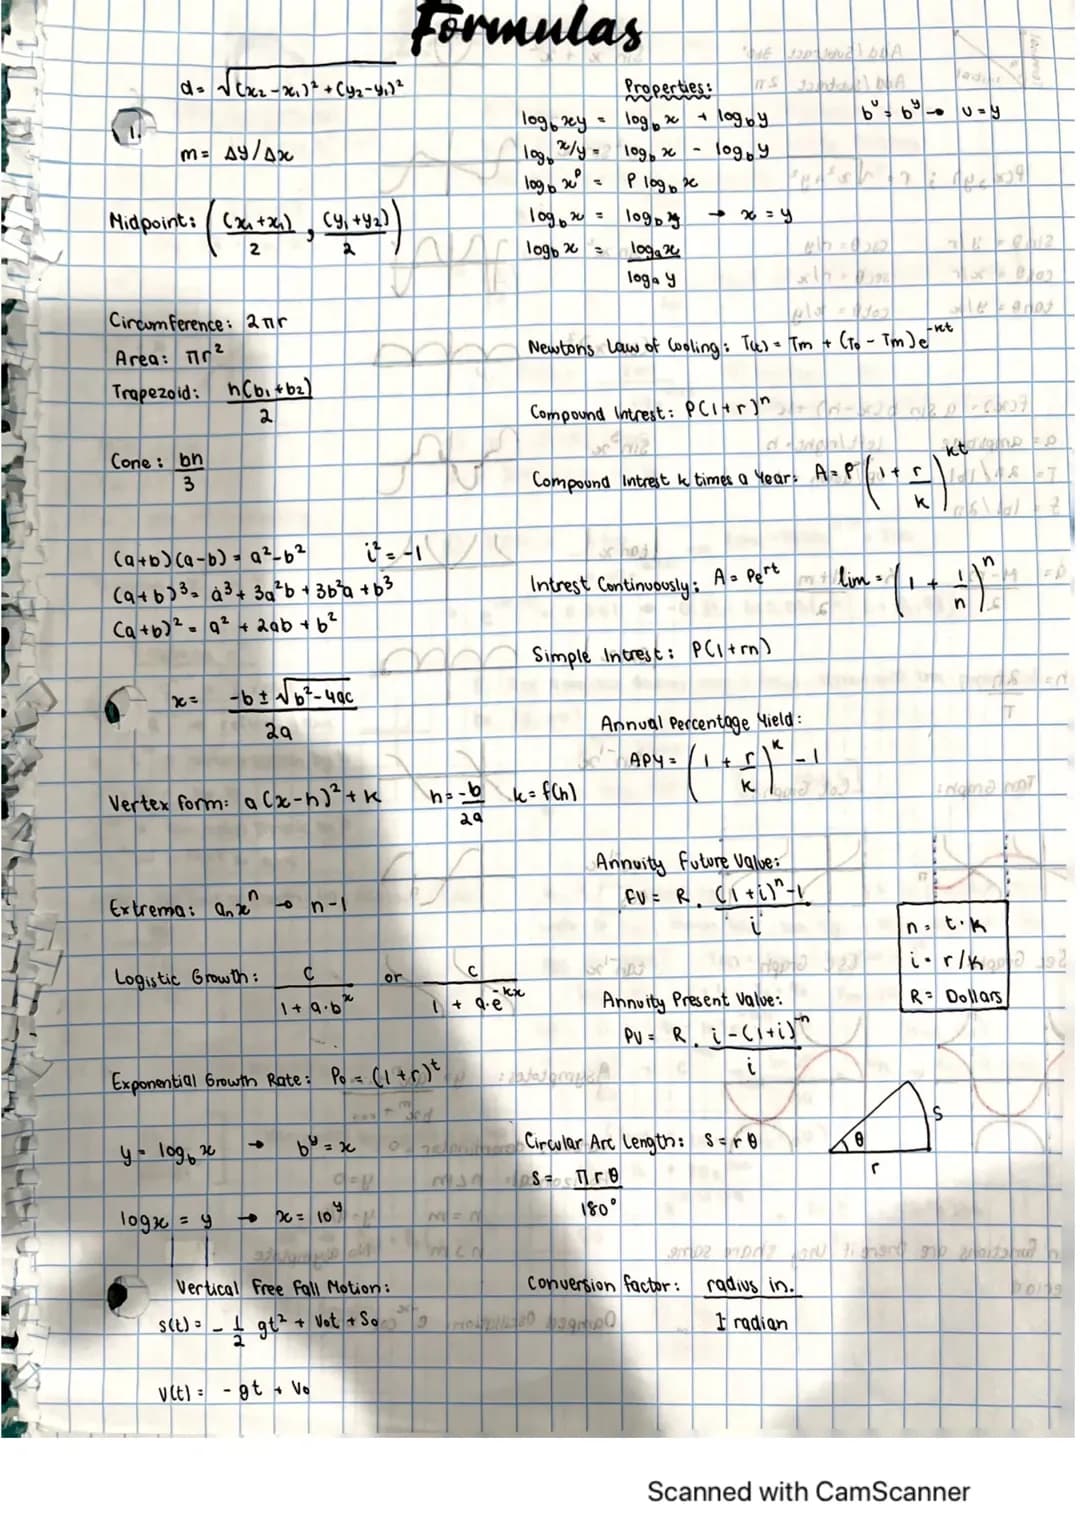 Formulas
d = √(x₂-x₁)² + (y₂-y₁)²
1.
m = Δy/Δx
Midpoint: ( (x₁+x₁)/2 , (y₁+y₂)/2 )
Circumference: 2πr
Area: πr²
Trapezoid: h(b₁+b₂)/2
Cone: bh/3
(a+b)(a-b) = a²-b² i² = -1
(a+b)³ = a³ + 3a²b + 3b²a + b³
(a+b)² = a² + 2ab + b²
x = -b ± √b²-4ac / 2a
Vertex form: a(x-h)² + k h = -b/2a k = f(h)
Extrema: aₙxⁿ → n-1
Logistic Growth: c/(1 + a·b^x) or c/(1 + a·e^-kx)
Exponential Growth Rate: P₀ = (1+r)^t
y = log_b x → b^y = x
logx = y → x = 10^y
Vertical Free Fall Motion:
s(t) = -1/2 gt² + V₀t + S₀
v(t) = -gt + V₀
Properties:
log_b xy = log_b x + log_b y b^u = b^y → u = y
log_b x/y = log_b x - log_b y
log_b x^p = P log_b x
log_b x = log_b y → x = y
log_b x = log_a x / log_a y
Newtons Law of Cooling: T(t) = Tm + (T₀ - Tm)e^-kt
Compound Intrest: P(1+r)^n
Compound Intrest k times a Year: A = P(1 + r/k)^kt
Intrest Continuously: A = Pe^rt lim = (1 + 1/n)^n
Simple Intrest: P(1+rn)
Annual Percentage Yield:
APY = (1 + r/k)^k - 1
Annuity Future Value:
FV = R · (1+i)^n - 1 / i
n = t·k
i = r/k
R = Dollars
Annuity Present Value:
PV = R · i-(1+i)^-n / i
Circular Arc Length: s = rθ
s = πrθ/180°
θ
r
s
Conversion factor: radius in. / 1 radian
Scanned with CamScanner